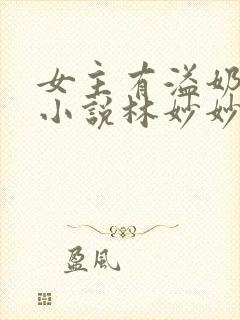 女主有溢奶
小说林妙妙
盈风